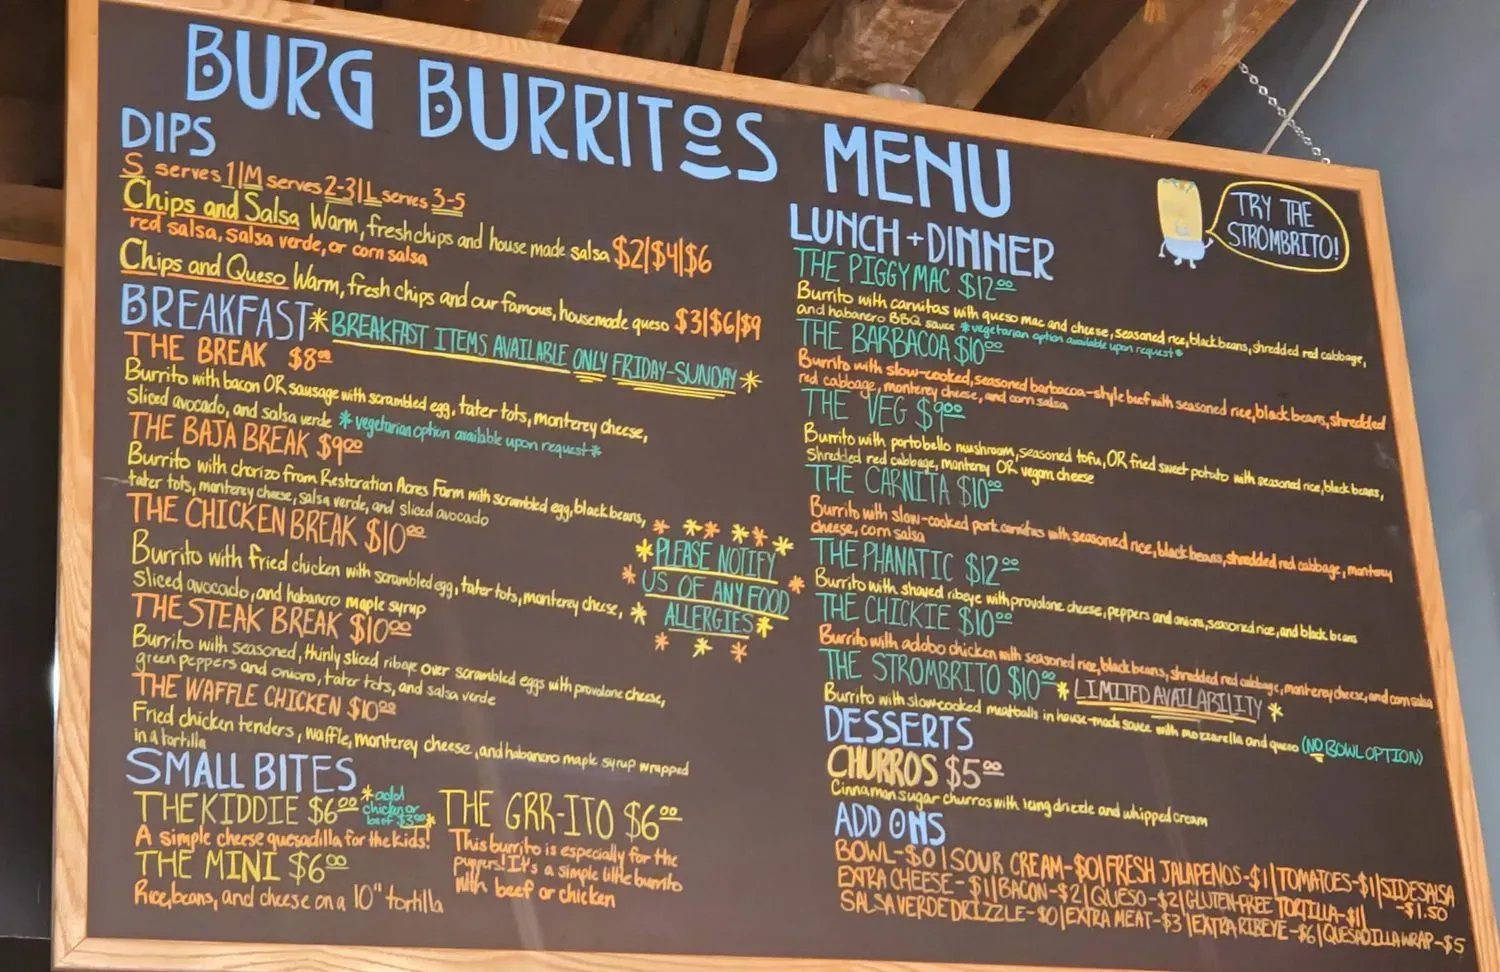 BURG BURRITOS MENU
DIPS
S serves 1|M serves 2-3|L serves 3-5
Chips and Salsa Warm, fresh chips and house made salsa $2|$4|$6
red salsa, salsa verde, or corn salsa
Chips and Queso Warm, fresh chips and our famous, housemade queso $3|$6|$9
BREAKFAST *BREAKFAST ITEMS AVAILABLE ONLY FRIDAY-SUNDAY*
THE BREAK $8.00
Burrito with bacon OR sausage with scrambled egg, tater tots, monterey cheese,
sliced avocado, and salsa verde *vegetarian option available upon request*
THE BAJA BREAK $9.00
Burrito with chorizo from Restoration Acres Farm with scrambled egg, black beans,
tater tots, monterey cheese, salsa verde, and sliced avocado
THE CHICKEN BREAK $10.00
Burrito with fried chicken with scrambled egg, tater tots, monterey cheese,
sliced avocado, and habanero maple syrup
THE STEAK BREAK $10.00
Burrito with seasoned, thinly sliced ribeye over scrambled eggs with provolone cheese,
green peppers and onions, tater tots, and salsa verde
THE WAFFLE CHICKEN $10.00
Fried chicken tenders, waffle, monterey cheese, and habanero maple syrup wrapped
in a tortilla
PLEASE NOTIFY
US OF ANY FOOD
ALLERGIES
SMALL BITES
THE KIDDIE $6.00 *add
chicken or
beef $3.00*
A simple cheese quesadilla for the kids!
THE MINI $6.00
Rice, beans, and cheese on a 10" tortilla
THE GRR-ITO $6.00
This burrito is especially for the
puppers! It's a simple little burrito
with beef or chicken
TRY THE
STROMBRITO!
LUNCH + DINNER
THE PIGGY MAC $12.00
Burrito with carnitas with queso mac and cheese, seasoned rice, black beans, shredded red cabbage,
and habanero BBQ sauce *vegetarian option available upon request*
THE BARBACOA $10.00
Burrito with slow-cooked, seasoned barbacoa-style beef with seasoned rice, black beans, shredded
red cabbage, monterey cheese, and corn salsa
THE VEG $9.00
Burrito with portobello mushroom, seasoned tofu, OR fried sweet potato with seasoned rice, black beans,
Shredded red cabbage, monterey OR vegan cheese
THE CARNITA $10.00
Burrito with slow-cooked pork carnitas with seasoned rice, black beans, shredded red cabbage, monterey
cheese, corn salsa
THE PHANATIC $12.00
Burrito with shaved ribeye with provolone cheese, peppers and onions, seasoned rice, and black beans
THE CHICKIE $10.00
Burrito with adobo chicken with seasoned rice, black beans, shredded red cabbage, monterey cheese, and corn salsa
THE STROMBRITO $10.00 *LIMITED AVAILABILITY*
Burrito with slow-cooked meatballs in house-made sauce with mozzarella and queso (NO BOWL OPTION)
DESSERTS
CHURROS $5.00
Cinnamon sugar churros with icing drizzle and whipped cream
ADD ONS
BOWL-$0|SOUR CREAM-$0|FRESH JALAPENOS-$1|TOMATOES-$1|SIDE SALSA
-$1.50
EXTRA CHEESE-$1|BACON-$2|QUESO-$2|GLUTEN-FREE TORTILLA-$1|
SALSA VERDE DRIZZLE-$0|EXTRA MEAT-$3|EXTRA RIBEYE-$6|QUESADILLA WRAP-$5